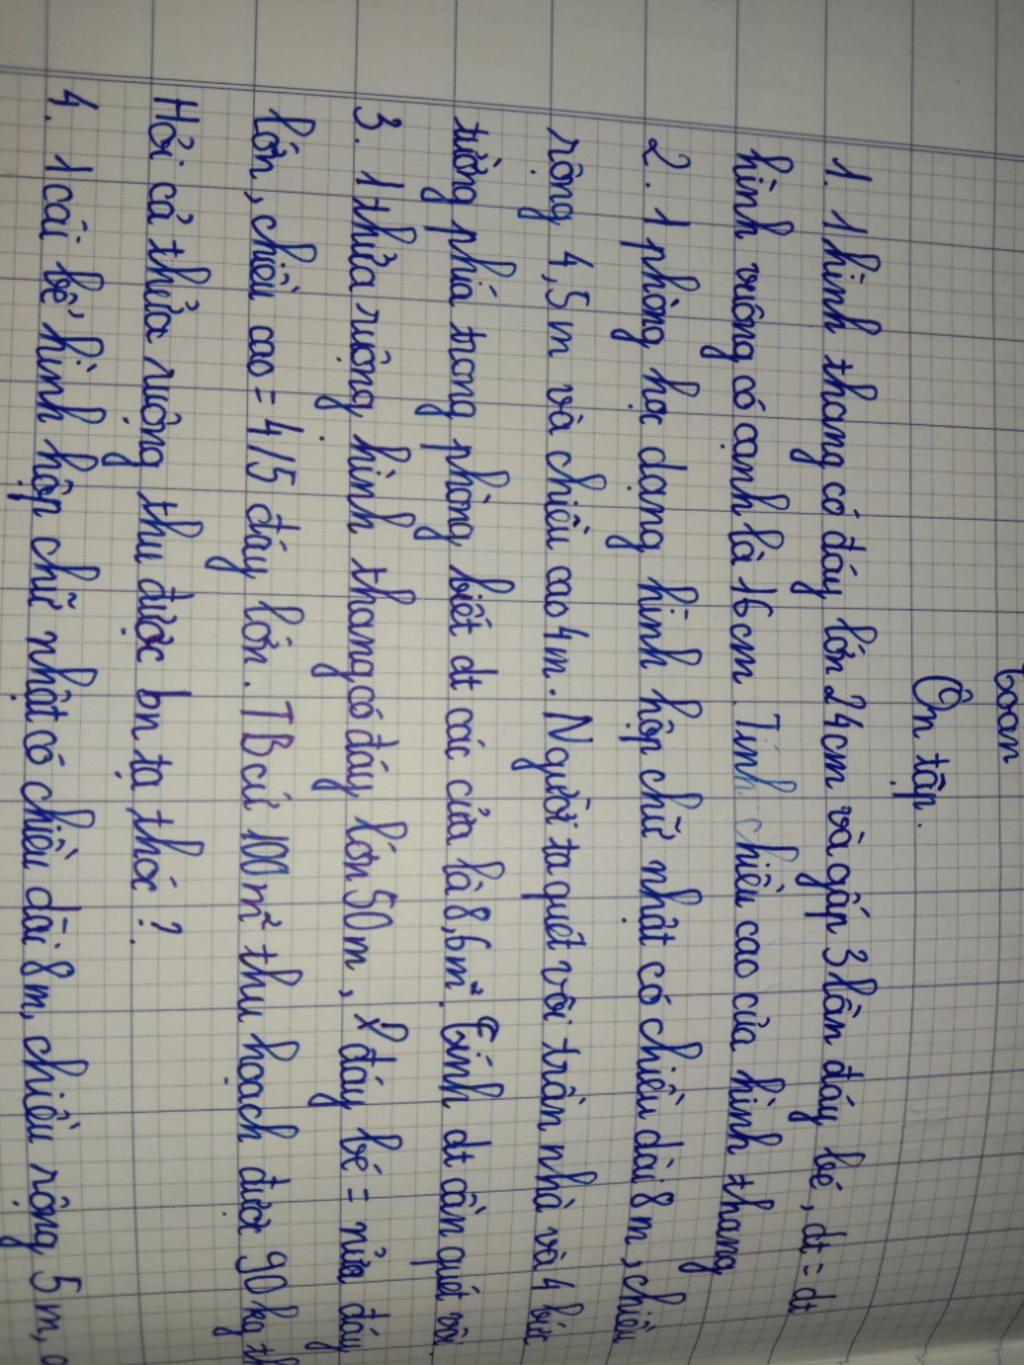 Toán
Ôn tập.
1. 1 hình thang có đáy lớn 24cm và gấp 3 lần đáy bé, dt = dt
hình vuông có cạnh là 16cm. Tính chiều cao của hình thang
2. 1 phòng học dạng hình hộp chữ nhật có chiều dài 8m, chiều
rộng 4,5m và chiều cao 4m. Người ta quét vôi trần nhà và 4 bức
tường phía trong phòng biết dt các cửa là 8,6m². Tính dt cần quét vôi
3. 1 thửa ruộng hình thang có đáy lớn 50m, đáy bé = nửa đáy
lớn, chiều cao = 4/5 đáy lớn. TB cứ 100m² thu hoạch được 90kg
Hỏi cả thửa ruộng thu được bn tạ thóc?
4. 1 cái bể hình hộp chữ nhật có chiều dài 8m, chiều rộng 5m,